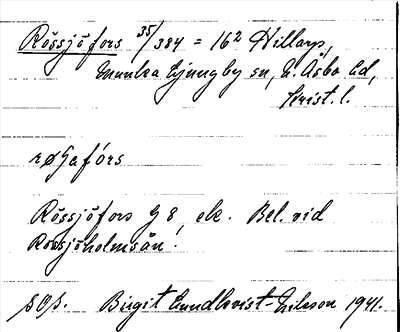 Rössjöfors 35/384 = 16² Hillarp,
Munka Ljungby sn, N. Åsbo hd,
Krist. l.
røʃafórs
Rössjöfors G 8, ek. Bel. vid
Rössjöholmsån!
sOp. Birgit Lundkvist-Ericson 1941.